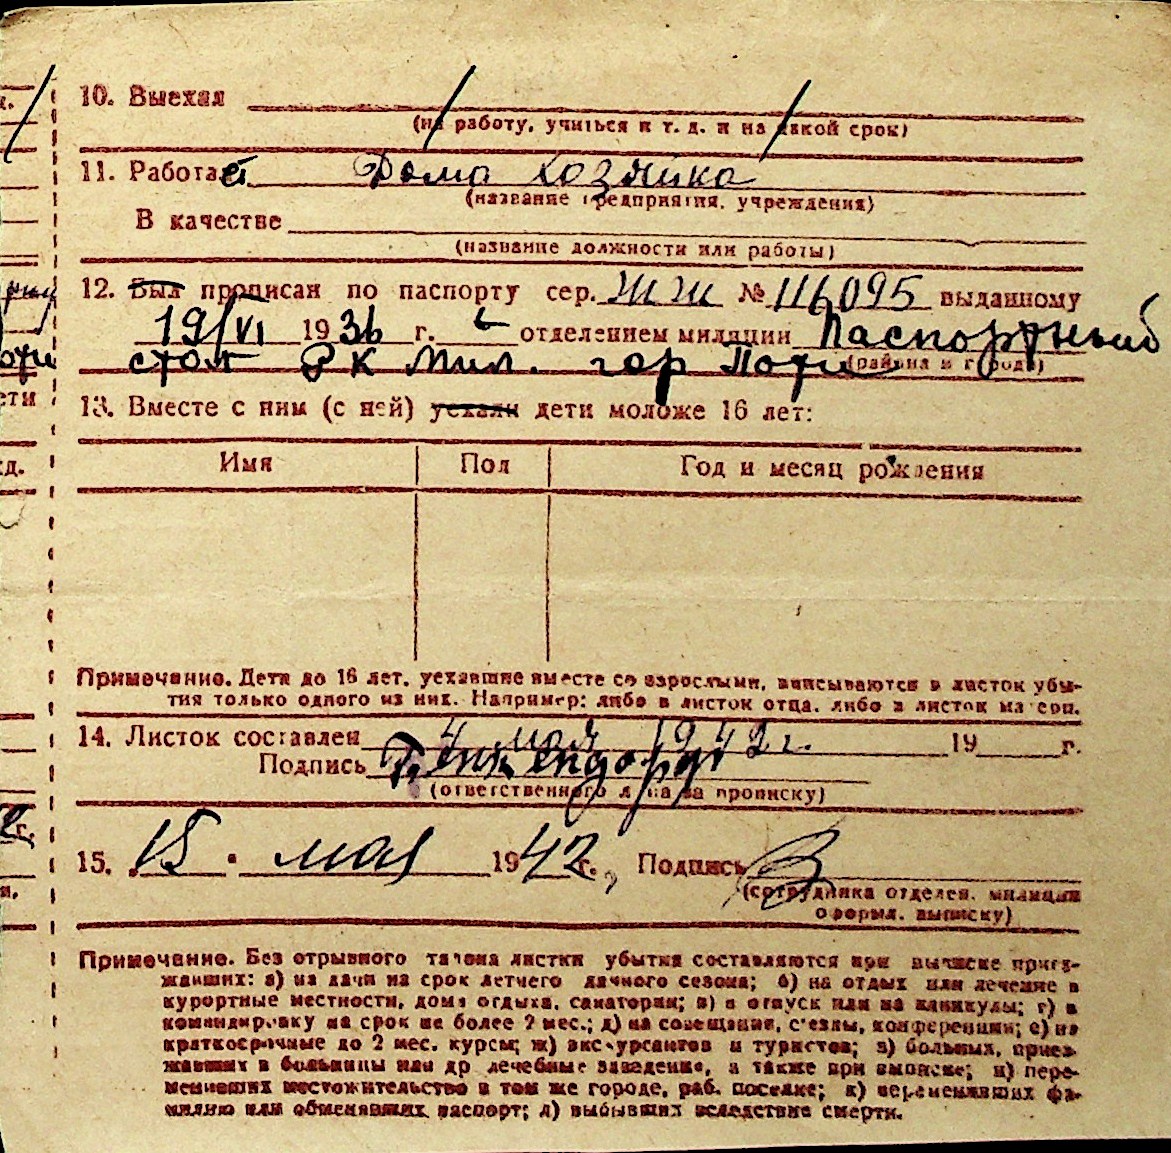 10. Выехал
(на работу, учиться и т. д. и на какой срок)
11. Работает Дома хозяйка
(название предприятия, учреждения)
В качестве
(название должности или работы)
12. Был прописан по паспорту сер. ЖЖ № 116095 выданному
19/VI 1936 г. отделением милиции Паспортный
стол РК Мил. гор Поти
(района и города)
13. Вместе с ним (с ней) уехали дети моложе 16 лет:
Имя Пол Год и месяц рождения
Примечание. Дети до 16 лет, уехавшие вместе со взрослыми, вписываются в листок убы-
тия только одного из них. Например: либо в листок отца, либо в листок матери.
14. Листок составлен 4 мая 1942 г. 19 г.
Подпись
(ответственного лица за прописку)
15. 15. мая 1942 г., Подпись
(сотрудника отделен. милиции
оформл. выписку)
Примечание. Без отрывного талона листки убытия составляются при выписке приез-
жавших: а) на дачи на срок летнего дачного сезона; б) на отдых или лечение в
курортные местности, дома отдыха, санатории; в) в отпуск или на каникулы; г) в
командировку на срок не более 2 мес.; д) на совещания, с'езды, конференции; е) на
краткосрочные до 2 мес. курсы; ж) экскурсантов и туристов; з) больных, приез-
жавших в больницы или др лечебные заведения, а также при выписке; и) пере-
менивших местожительство в том же городе, раб. поселке; к) переменивших фа-
милию или обменявших паспорт; л) выбывших вследствие смерти.